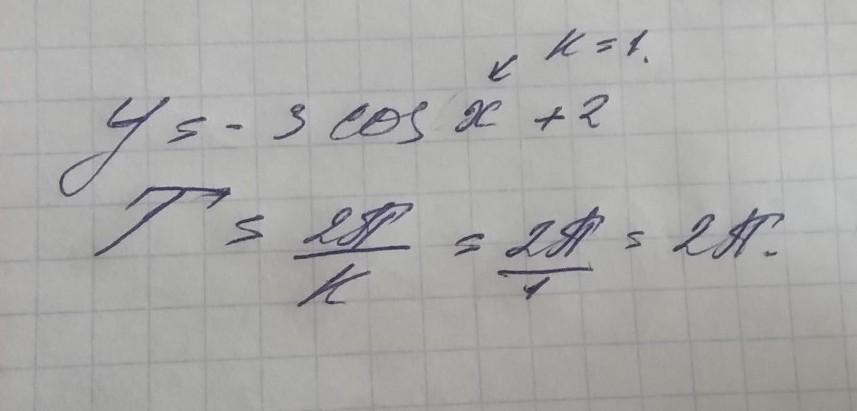 k = 1.
y = - 3 cos x + 2
T = 2π/k = 2π/1 = 2π.